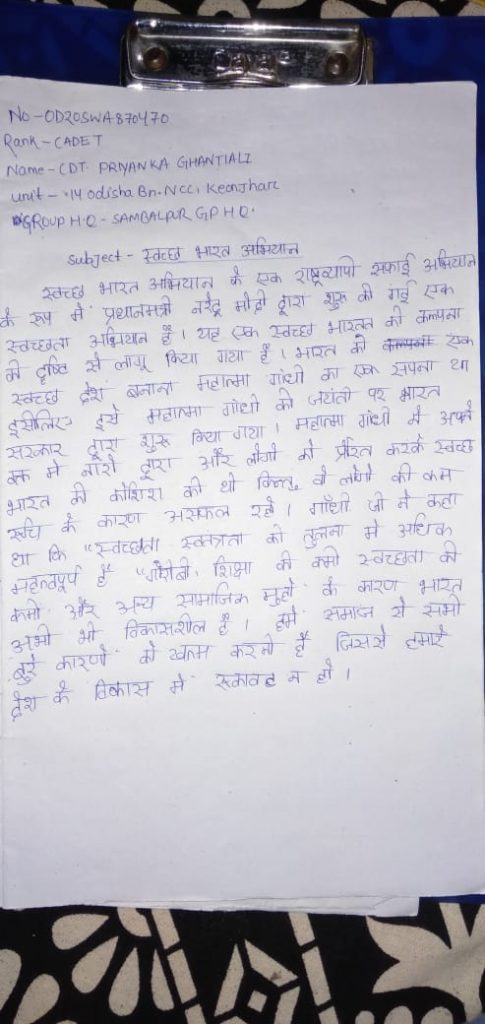 No - OD20SWA870470
Rank - CADET
Name - CDT. PRIYANKA GHANTIALI
unit - 14 odisha Bn. Ncc, Keonjhar
GROUP H.Q - SAMBALPUR GP H Q.
subject - स्वच्छ भारत अभियान
स्वच्छ भारत अभियान के एक राष्ट्रव्यापी सफाई अभियान
के रूप में प्रधानमंत्री नरेंद्र मोदी द्वारा शुरू की गई एक
स्वच्छता अभियान है। यह एक स्वच्छ भारत की कल्पना
की दृष्टि से लागू किया गया है। भारत को एक
स्वच्छ देश बनाना महात्मा गांधी का एक सपना था
इसीलिए इसे महात्मा गांधी की जयंती पर भारत
सरकार द्वारा शुरू किया गया। महात्मा गांधी ने अपने
वक्त मे नारो द्वारा और लोगो को प्रेरित करके स्वच्छ
भारत की कोशिश की थी किन्तु वो लोगो की कम
रूचि के कारण असफल रहे। गाँधी जी ने कहा
था कि "स्वच्छता स्वतंत्रता की तुलना मे अधिक
महत्वपूर्ण है "गरीबी, शिक्षा की कमी स्वच्छता की
कमी और अन्य सामाजिक मुद्दो के कारण भारत
अभी भी विकासशील है। हमे समाज से सभी
बुरे कारणो को खत्म करनी है जिससे हमारे
देश के विकास मे रूकावट न हो।